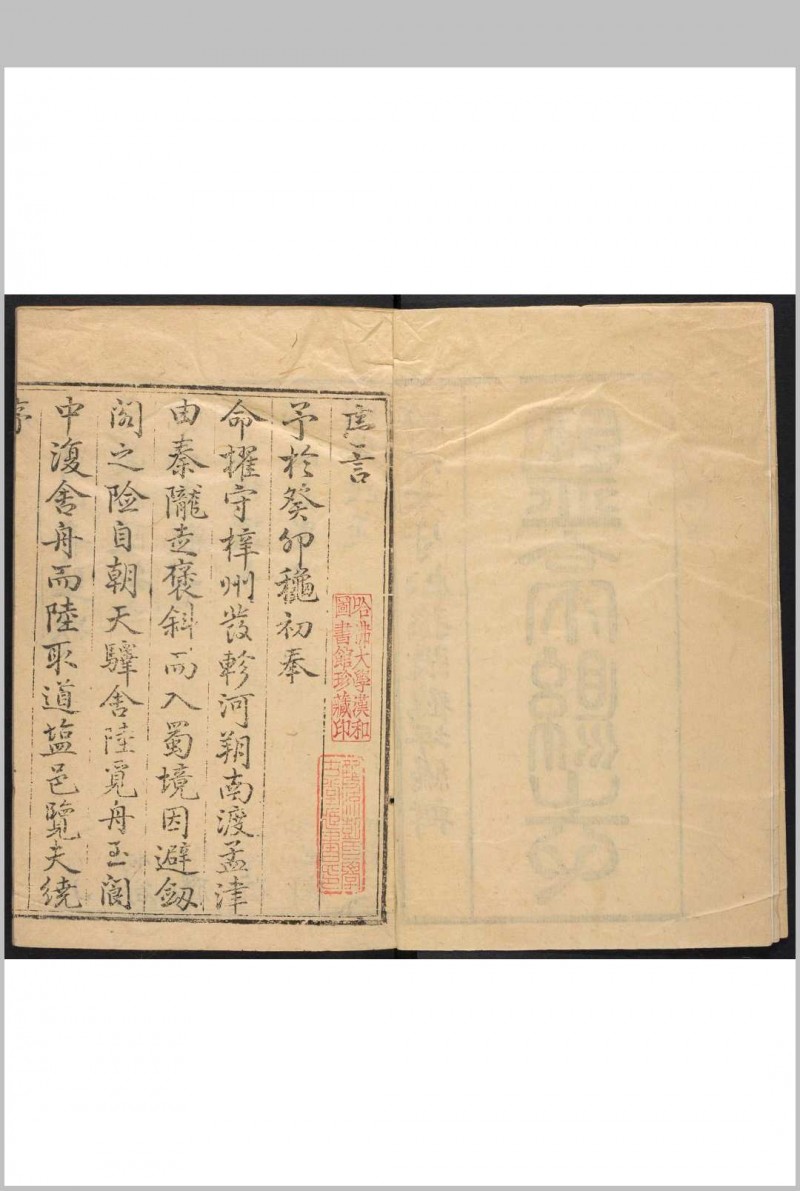 言
予於癸卯龝初奉
命擢守梓州發軫河朔南渡孟津
由秦隴走褒斜而入蜀境因避劔
阁之险自朝天驛舍陸覓舟玉閬
中復舍舟而陸取道塩邑覽夫繞
序
哈佛大學漢和
圖書館珍藏印